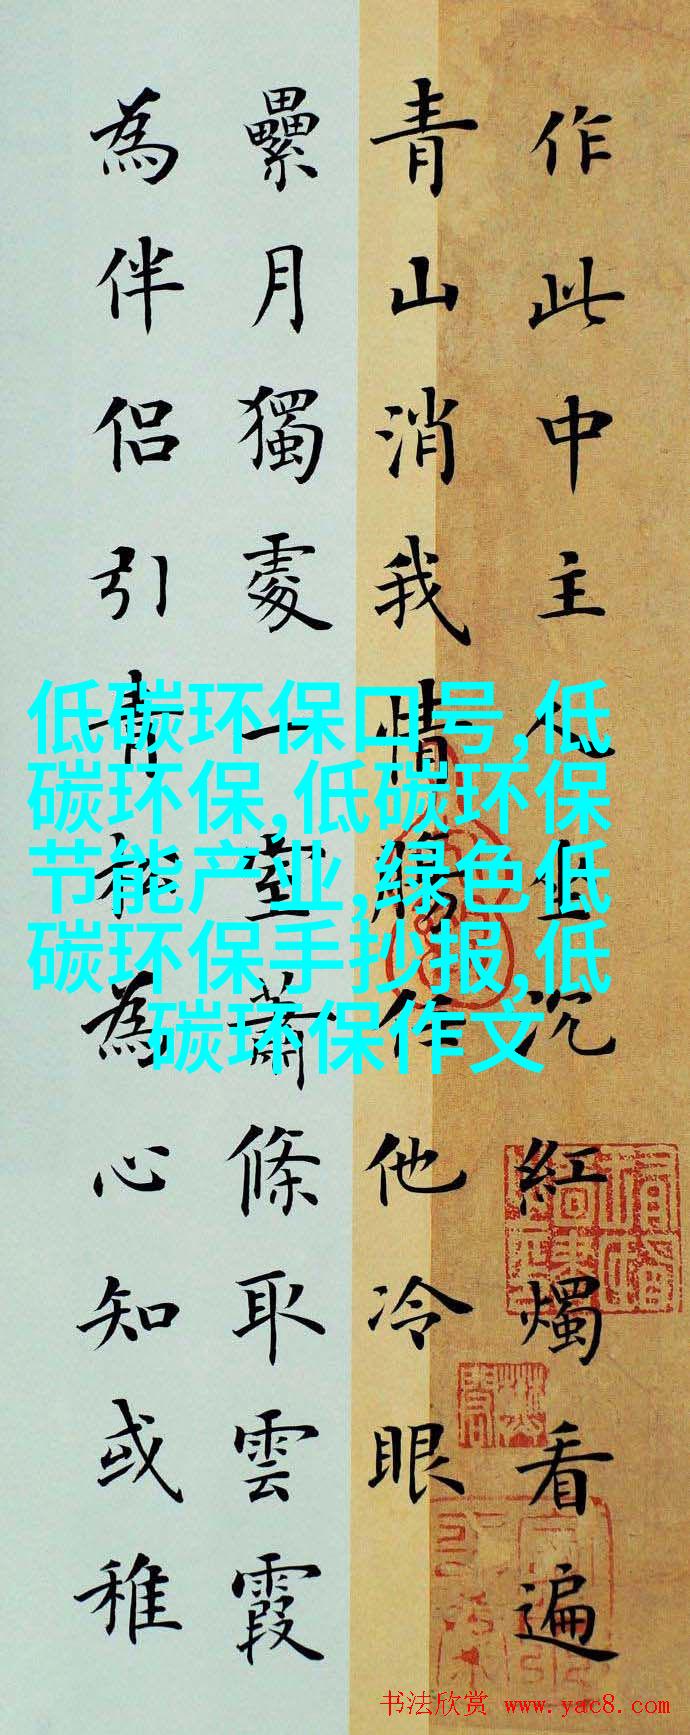 作此中主
沉紅燭看遍
青山消我
任他冷眼
纍月獨處一室蕭條取雲霞
為伴侶引青松為心知或稚
低碳环保口号,低
碳环保,低碳环保
节能产业,绿色低
碳环保手抄报,低
碳环保作文
书法欣赏 www.yac8.com